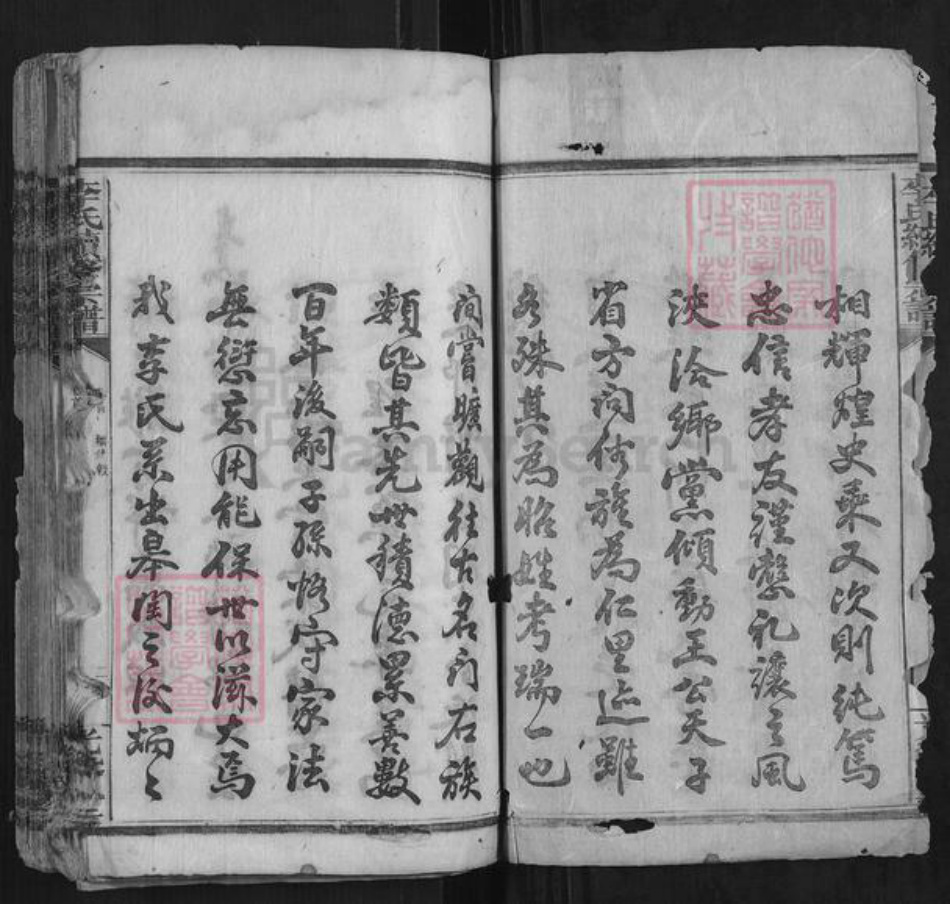 相輝煌史乘又次則純篤
忠信孝友謹慤礼讓之風
浹洽鄉黨傾動王公天子
省方詢俗旌為仁里迹雖
各殊其為昭姓考瑞一也
間嘗曠觀往古名門右族
類皆其先世積德累善數
百年後嗣子孫恪守家法
無愆忘用能保世以滋大焉
我李氏系出皋陶之後炳〻
李氏續修宗譜